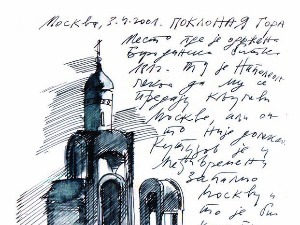 Москва, 3.9.2001. ПОКЛОНАЯ ГОРА
Место где је одржана
Бородинска битка
1812. Ту је Наполеон
чекао да му се
предају кључеви
Москве, али он
то није дочекао
Кутузов је у
међувремену
запалио
Москву и
то је био